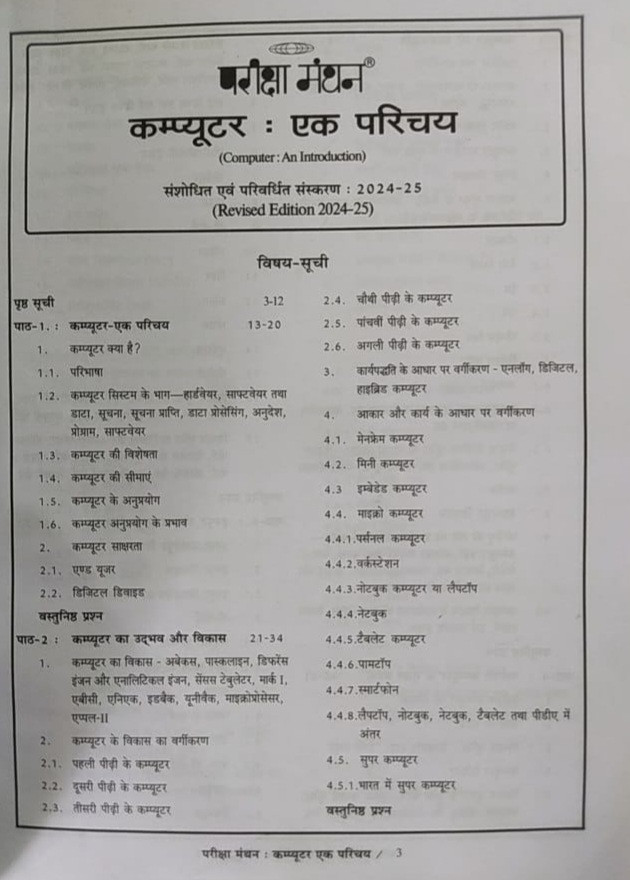 परीक्षा मंथन®
कम्प्यूटर : एक परिचय
(Computer : An Introduction)
संशोधित एवं परिवर्धित संस्करण : 2024-25
(Revised Edition 2024-25)
विषय-सूची
पृष्ठ सूची 3-12
पाठ-1. : कम्प्यूटर-एक परिचय 13-20
1. कम्प्यूटर क्या है?
1.1. परिभाषा
1.2. कम्प्यूटर सिस्टम के भाग—हार्डवेयर, साफ्टवेयर तथा
डाटा, सूचना, सूचना प्राप्ति, डाटा प्रोसेसिंग, अनुदेश,
प्रोग्राम, साफ्टवेयर
1.3. कम्प्यूटर की विशेषता
1.4. कम्प्यूटर की सीमाएं
1.5. कम्प्यूटर के अनुप्रयोग
1.6. कम्प्यूटर अनुप्रयोग के प्रभाव
2. कम्प्यूटर साक्षरता
2.1. एण्ड यूजर
2.2. डिजिटल डिवाइड
वस्तुनिष्ठ प्रश्न
पाठ-2 : कम्प्यूटर का उद्भव और विकास 21-34
1. कम्प्यूटर का विकास - अबेकस, पास्कलाइन, डिफरेंस
इंजन और एनालिटिकल इंजन, सेंसस टेबुलेटर, मार्क I,
एबीसी, एनिएक, इडबैक, यूनीवैक, माइक्रोप्रोसेसर,
एप्पल-II
2. कम्प्यूटर के विकास का वर्गीकरण
2.1. पहली पीढ़ी के कम्प्यूटर
2.2. दूसरी पीढ़ी के कम्प्यूटर
2.3. तीसरी पीढ़ी के कम्प्यूटर
2.4. चौथी पीढ़ी के कम्प्यूटर
2.5. पांचवीं पीढ़ी के कम्प्यूटर
2.6. अगली पीढ़ी के कम्प्यूटर
3. कार्यपद्धति के आधार पर वर्गीकरण - एनलॉग, डिजिटल,
हाइब्रिड कम्प्यूटर
4. आकार और कार्य के आधार पर वर्गीकरण
4.1. मेनफ्रेम कम्प्यूटर
4.2. मिनी कम्प्यूटर
4.3 इम्बेडेड कम्प्यूटर
4.4. माइक्रो कम्प्यूटर
4.4.1.पर्सनल कम्प्यूटर
4.4.2.वर्कस्टेशन
4.4.3.नोटबुक कम्प्यूटर या लैपटॉप
4.4.4.नेटबुक
4.4.5.टैबलेट कम्प्यूटर
4.4.6.पामटॉप
4.4.7.स्मार्टफोन
4.4.8.लैपटॉप, नोटबुक, नेटबुक, टैबलेट तथा पीडीए में
अंतर
4.5. सुपर कम्प्यूटर
4.5.1.भारत में सुपर कम्प्यूटर
वस्तुनिष्ठ प्रश्न
परीक्षा मंथन : कम्प्यूटर एक परिचय / 3